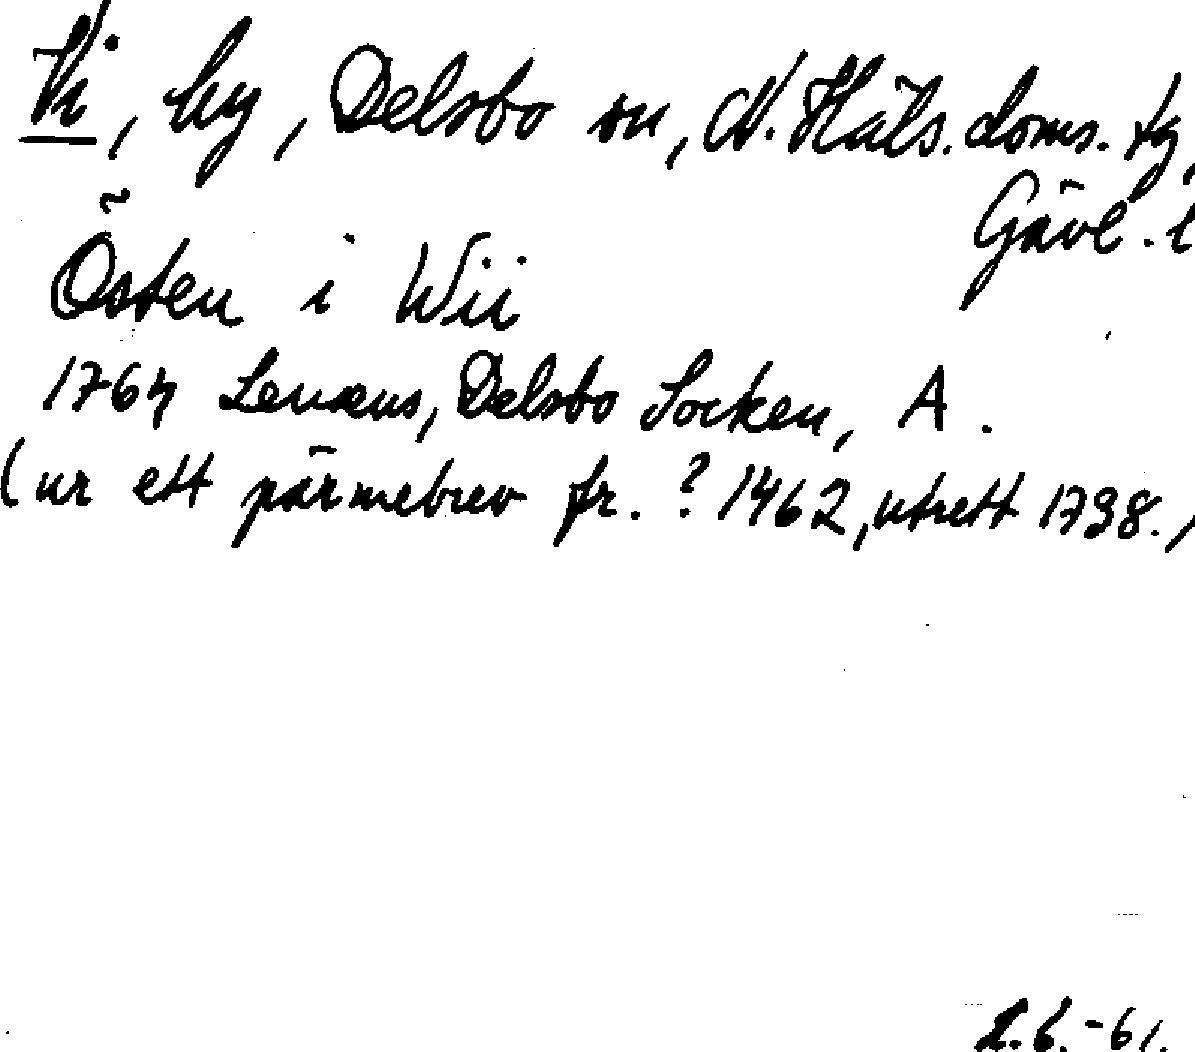 Vi, by, Delsbo sn, N. Häls. doms. tg,
Gävl. l
Östen i Wii
1764 Lenæus, Delsbo Socken, A.
(ur ett pärmebrev fr. ? 1462, utrett 1738.)
2.6.-61.